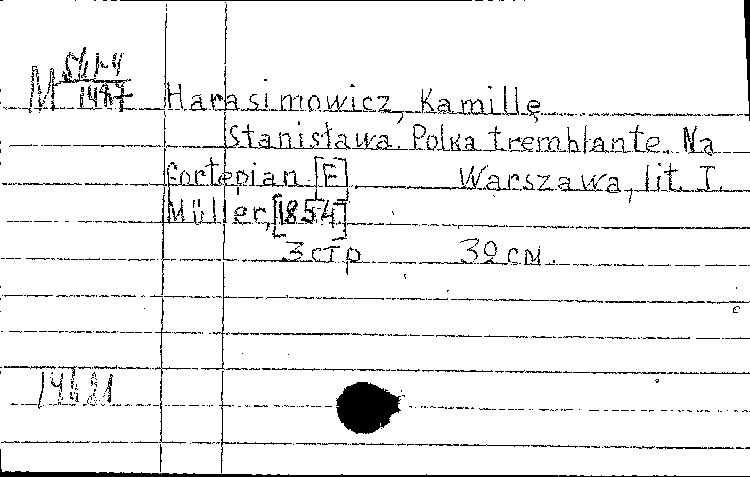 M 561-4
1487
Harasimowicz, Kamillę
Stanisława. Polka tremblante. Na
fortepian. [F]. Warszawa, lit. I.
Müller, [1854]
3 стр 32 см.
14621